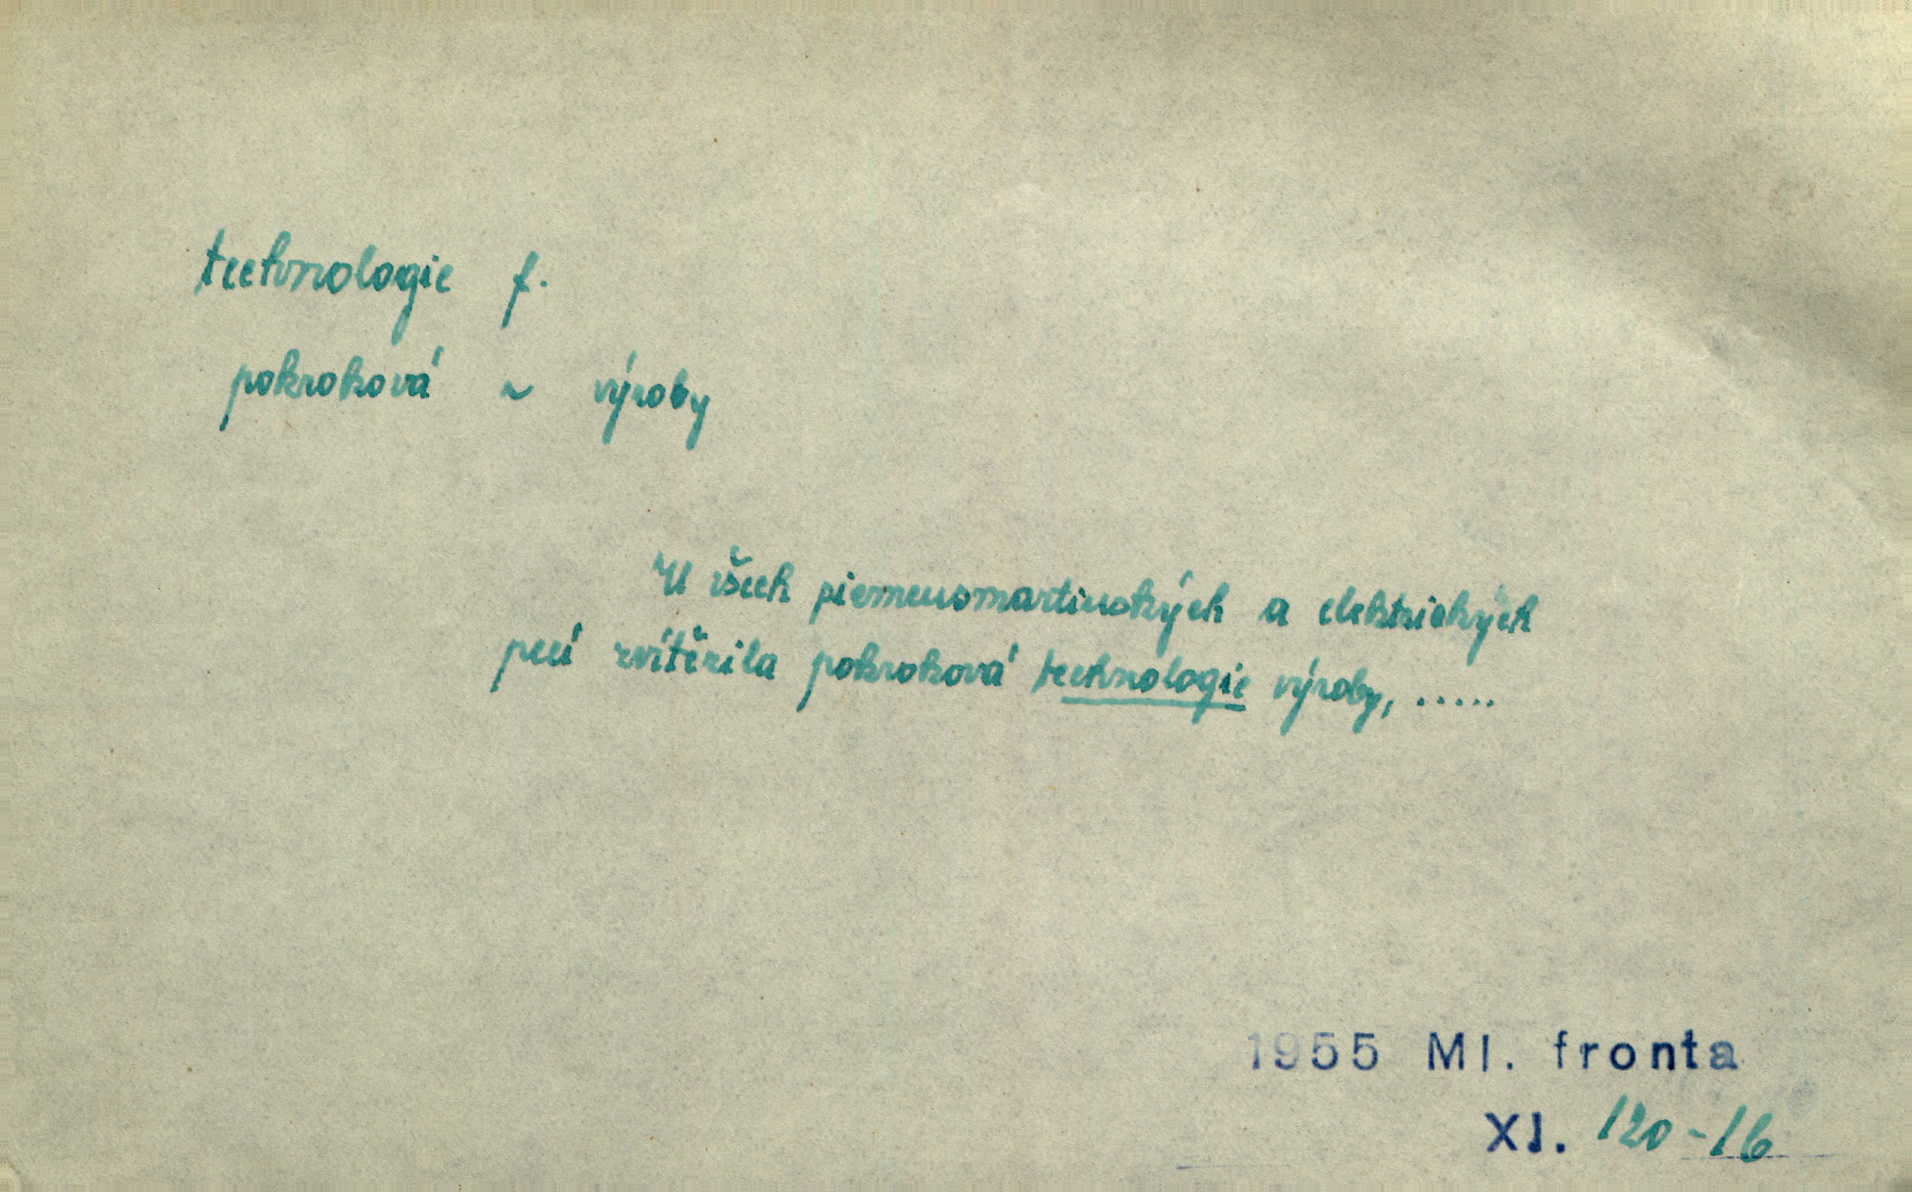 technologie f.
pokroková ~ výroby
U všech siemensmartinských a elektrických
pecí zvítězila pokroková technologie výroby, .....
1955 Ml. fronta
XI. 120-16